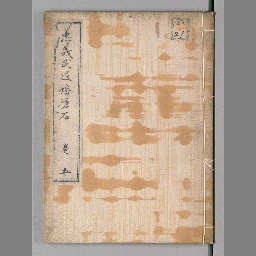 忠義武道播磨石 巻五